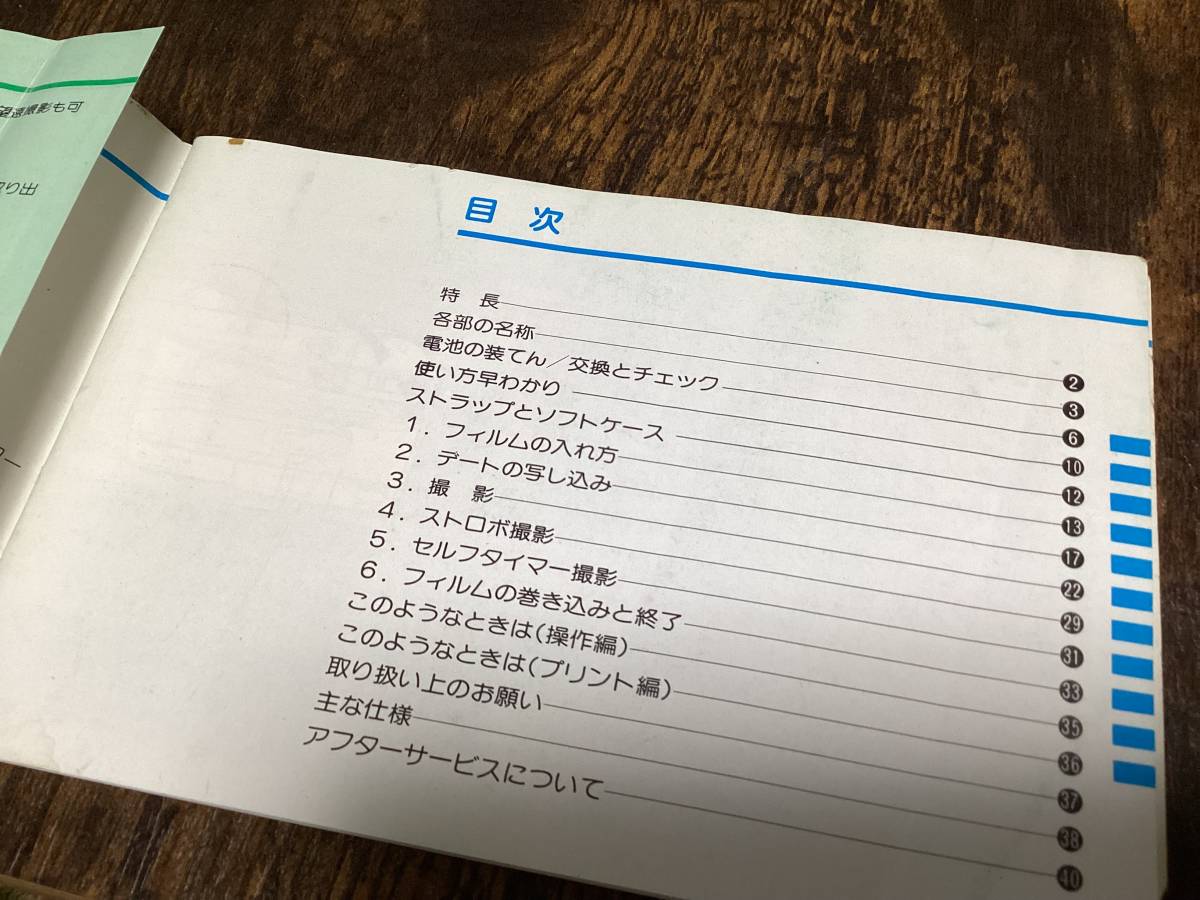 望遠撮影も可
り出
ー
目 次
特 長 2
各部の名称 3
電池の装てん/交換とチェック 6
使い方早わかり 10
ストラップとソフトケース 12
1. フィルムの入れ方 13
2. デートの写し込み 17
3. 撮 影 22
4. ストロボ撮影 29
5. セルフタイマー撮影 31
6. フィルムの巻き込みと終了 33
このようなときは(操作編) 35
このようなときは(プリント編) 36
取り扱い上のお願い 37
主な仕様 38
アフターサービスについて 40